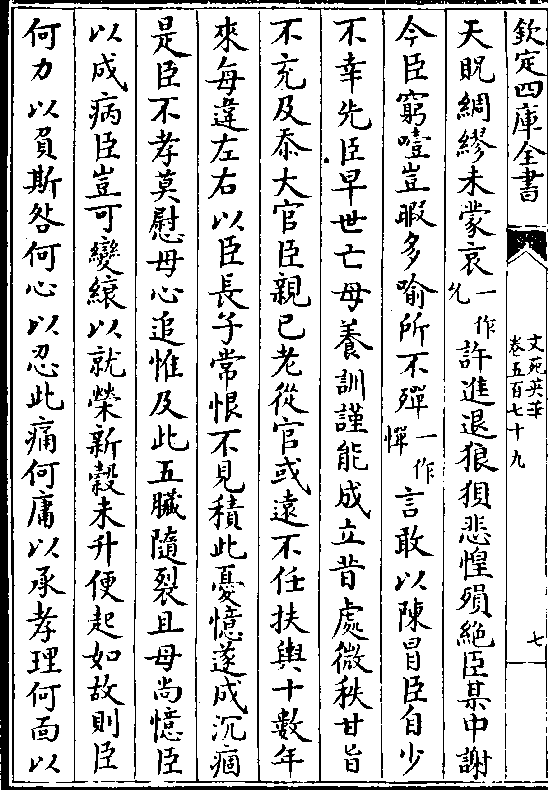 欽定四庫全書
文苑英華
卷五百七十九
七
天眖綢繆未蒙哀一作允許進退狼狽悲惶殞絶臣某中謝
今臣窮噎豈暇多喻所不殫一作憚言敢以陳冒臣自少
不幸先臣早世亡母養訓謹能成立昔處微秩甘旨
不充及忝大官臣親已老從官或遠不任扶輿十數年
來每違左右以臣長子常恨不見積此憂憶遂成沉痼
是臣不孝莫慰母心追惟及此五臟隨裂且母尚憶臣
以成病臣豈可變縗以就榮新穀未升便起如故則臣
何力以負斯咎何心以忍此痛何庸以承孝理何面以